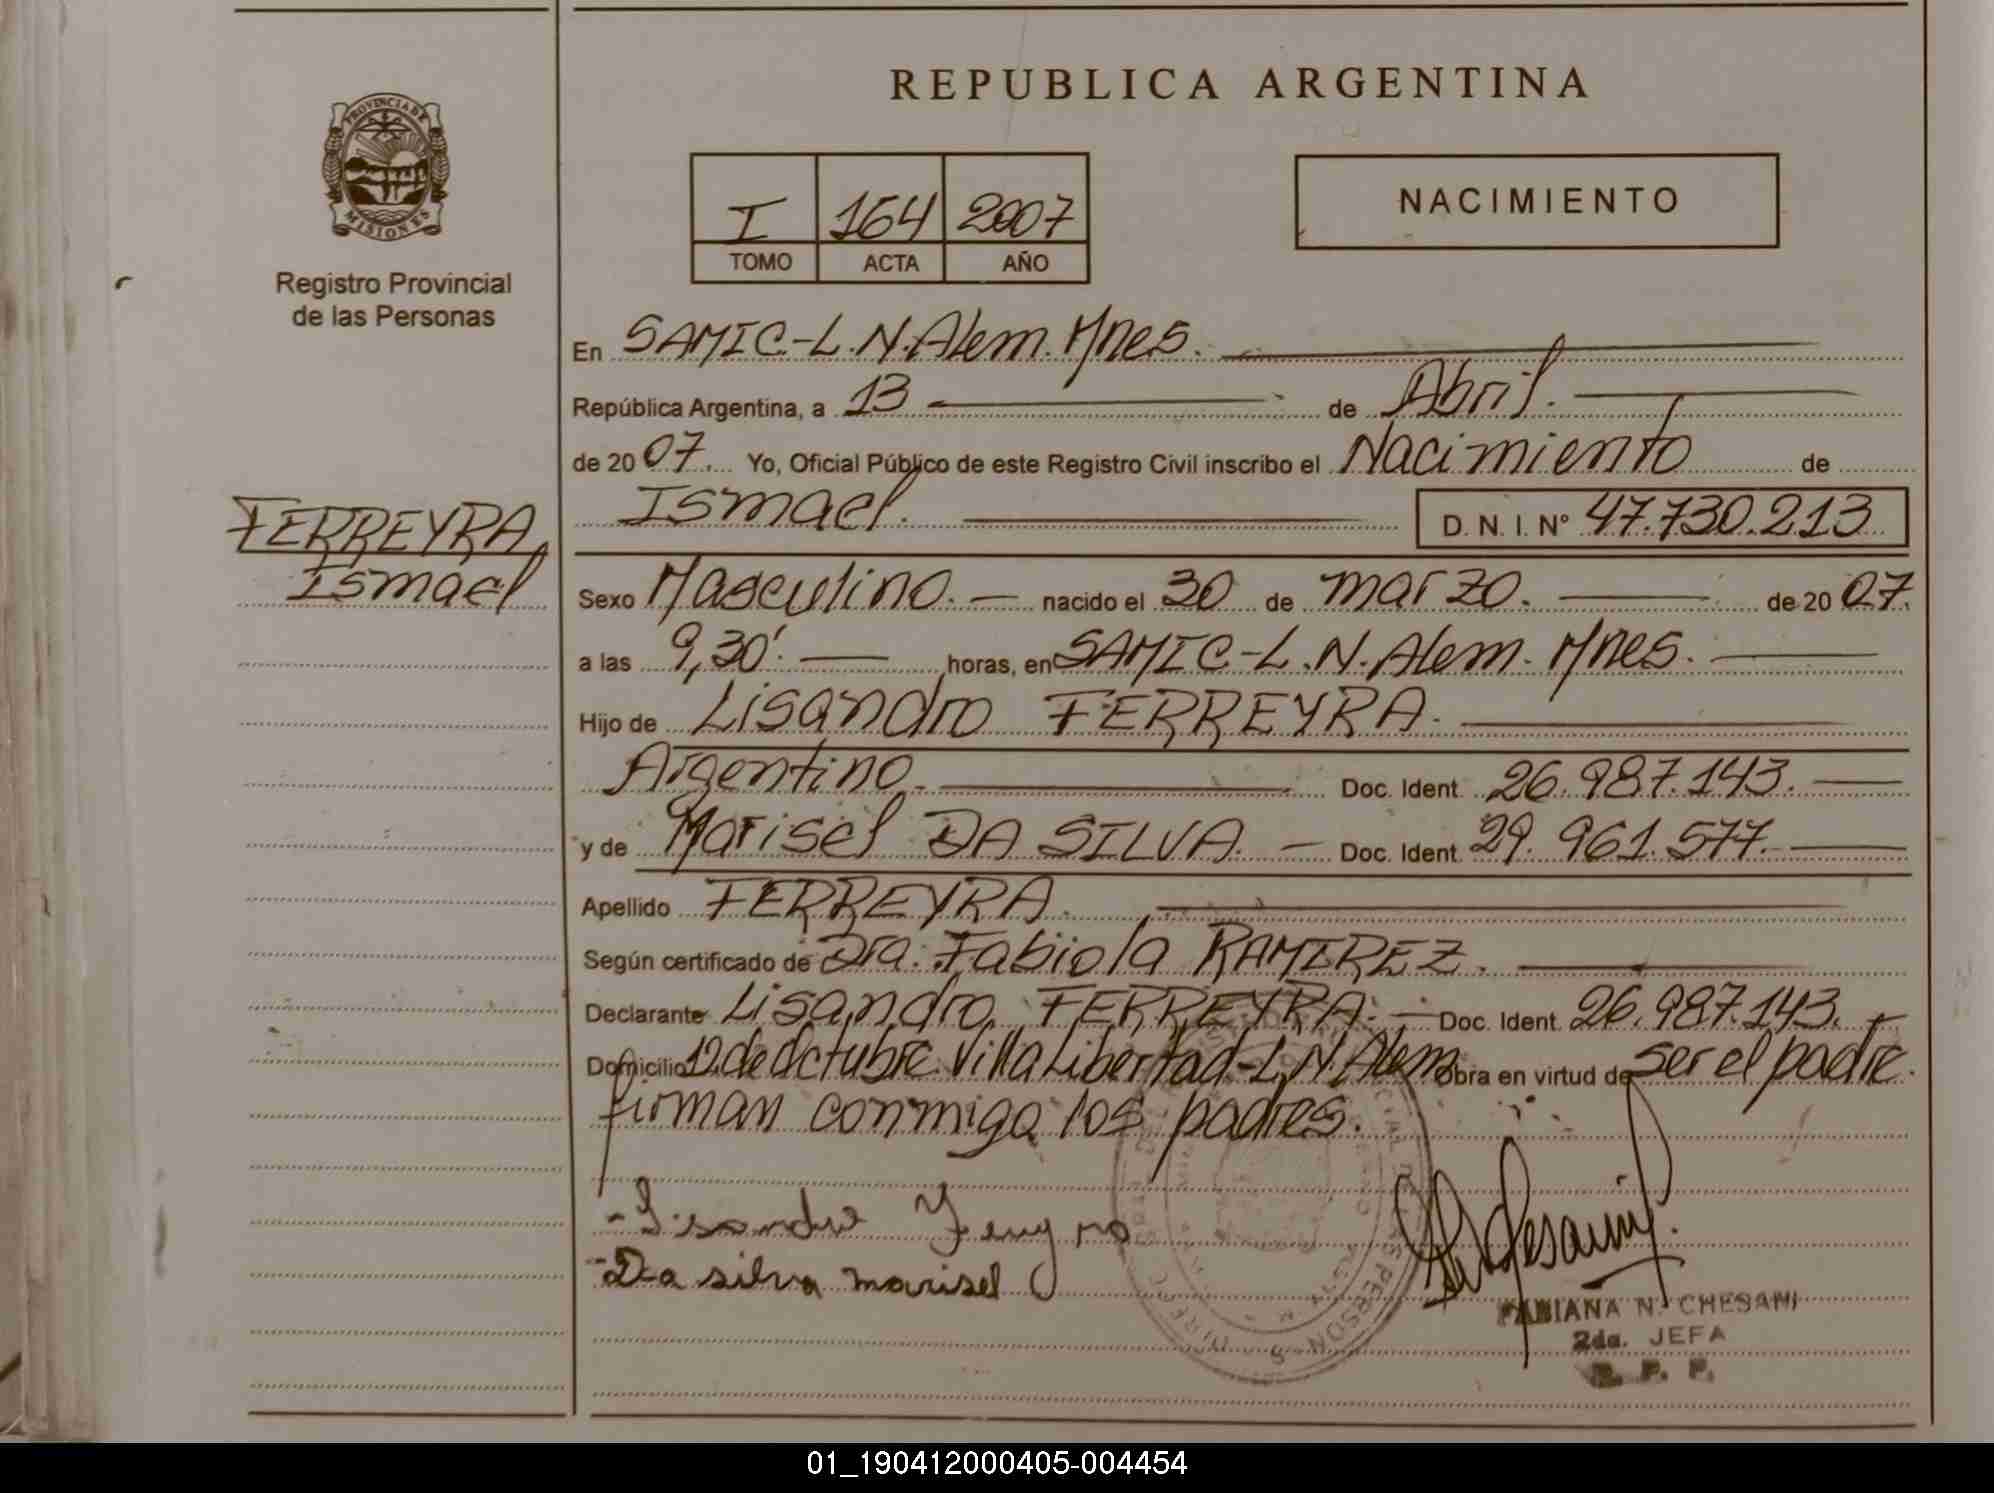 REPUBLICA ARGENTINA
PROVINCIA DE
MISIONES
Registro Provincial
de las Personas
I 164 2007
TOMO ACTA AÑO
NACIMIENTO
En SAMIC.-L.N.Alem.Mnes.
República Argentina, a 13 de Abril.
de 20 07. Yo, Oficial Público de este Registro Civil inscribo el Nacimiento de
Ismael. D. N. I. Nº 47.730.213
FERREYRA
Ismael
Sexo Masculino. nacido el 30 de marzo. de 20 07.
a las 9,30'. horas, en SAMIC-L.N.Alem. Mnes.
Hijo de Lisandro FERREYRA.
Argentino. Doc. Ident. 26.987.143.
y de Marisel DA SILVA. Doc. Ident. 29.961.577.
Apellido FERREYRA.
Según certificado de Dra. Fabiola RAMIREZ.
Declarante Lisandro FERREYRA. Doc. Ident. 26.987.143.
Domicilio 12 de Octubre. Villa Libertad-L.N.Alem Obra en virtud de ser el padre.
firman conmigo los padres.
-Da silva marisel
FABIANA N. CHESANI
2da. JEFA
R. P. P.
01_190412000405-004454